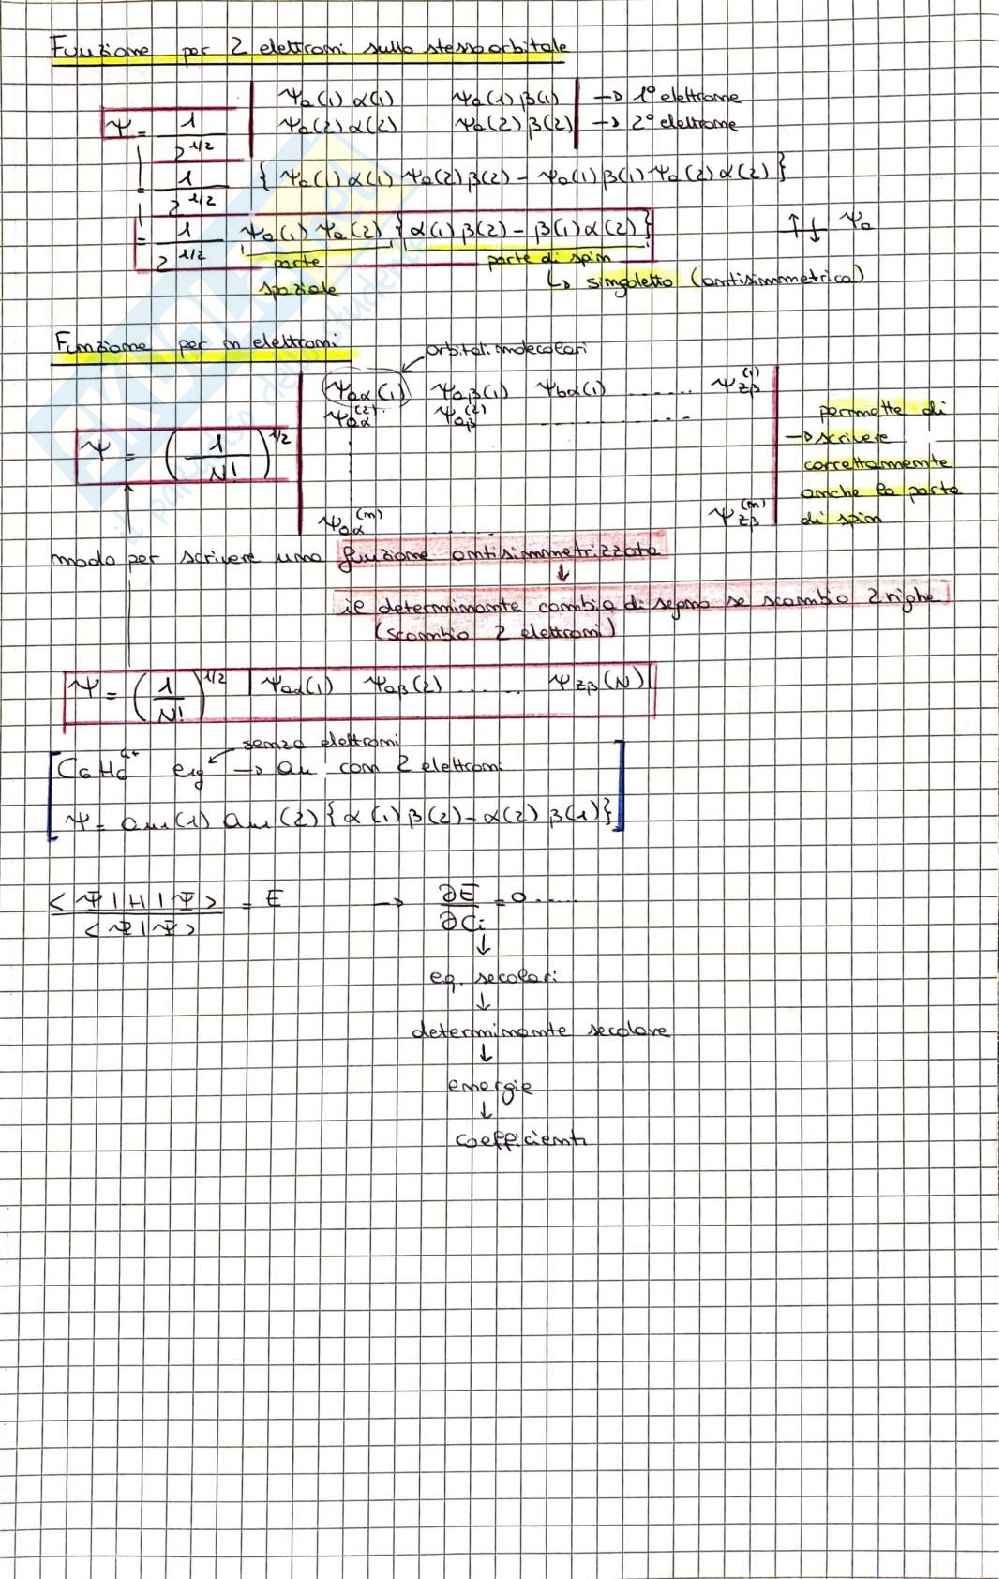 Funzione per 2 elettroni sullo stesso orbitale
Ψ = 1/2^1/2 | Ψa(1)α(1) Ψa(1)β(1) | → 1° elettrone
| Ψa(2)α(2) Ψa(2)β(2) | → 2° elettrone
= 1/2^1/2 { Ψa(1)α(1) Ψa(2)β(2) - Ψa(1)β(1) Ψa(2)α(2) }
= 1/2^1/2 Ψa(1) Ψa(2) { α(1)β(2) - β(1)α(2) } ↑↓ Ψa
parte spaziale
parte di spin
↳ singoletto (antisimmetrica)
Funzione per n elettroni
orbitali molecolari
Ψ = (1/N!)^1/2 | Ψaα(1) Ψaβ(1) Ψbα(1) ...... Ψzβ(1) |
Ψaα(2) Ψaβ(2) ...........
Ψaα(n) ...... Ψzβ(n)
permette di
→ scrivere
correttamente
anche la parte
di spin
modo per scrivere una funzione antisimmetrizzata
↓
il determinante cambia di segno se scambio 2 righe
(scambio 2 elettroni)
Ψ = (1/N!)^1/2 | Ψaα(1) Ψaβ(2) ....... Ψzβ(N) |
senza elettroni
C6H6^4+ e1g → a2u con 2 elettroni
Ψ = a2u(1) a2u(2) { α(1)β(2) - α(2)β(1) }
<Ψ|H|Ψ> / <Ψ|Ψ> = E → ∂E/∂Ci = 0 .....
↓
eq. secolari
↓
determinante secolare
↓
energie
↓
coefficienti